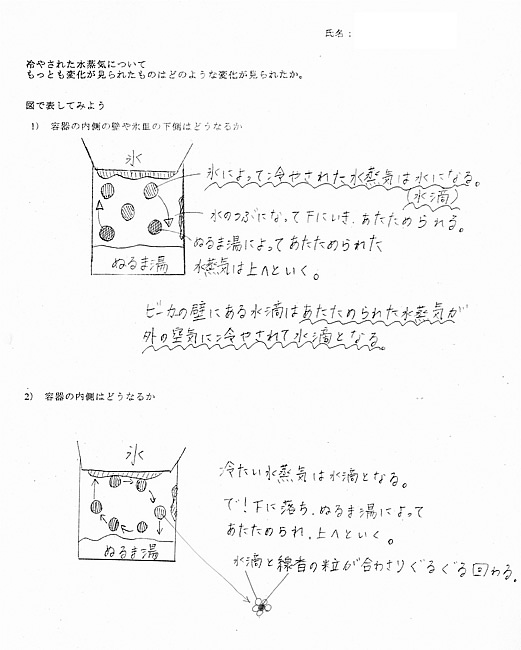 氏名：
冷やされた水蒸気について
もっとも変化が見られたものはどのような変化が見られたか。
図で表してみよう
1) 容器の内側の壁や氷皿の下側はどうなるか
氷
氷によって冷やされた水蒸気は水になる。
(水滴)
水のつぶになって下にいき、あたためられる。
ぬるま湯によってあたためられた
水蒸気は上へといく。
ぬるま湯
ビーカの壁にある水滴はあたためられた水蒸気が
外の空気に冷やされて水滴となる。
2) 容器の内側はどうなるか
氷
冷たい水蒸気は水滴となる。
で！下に落ち、ぬるま湯によって
あたためられ、上へといく。
ぬるま湯
水滴と線香の粒が合わさりぐるぐる回わる。